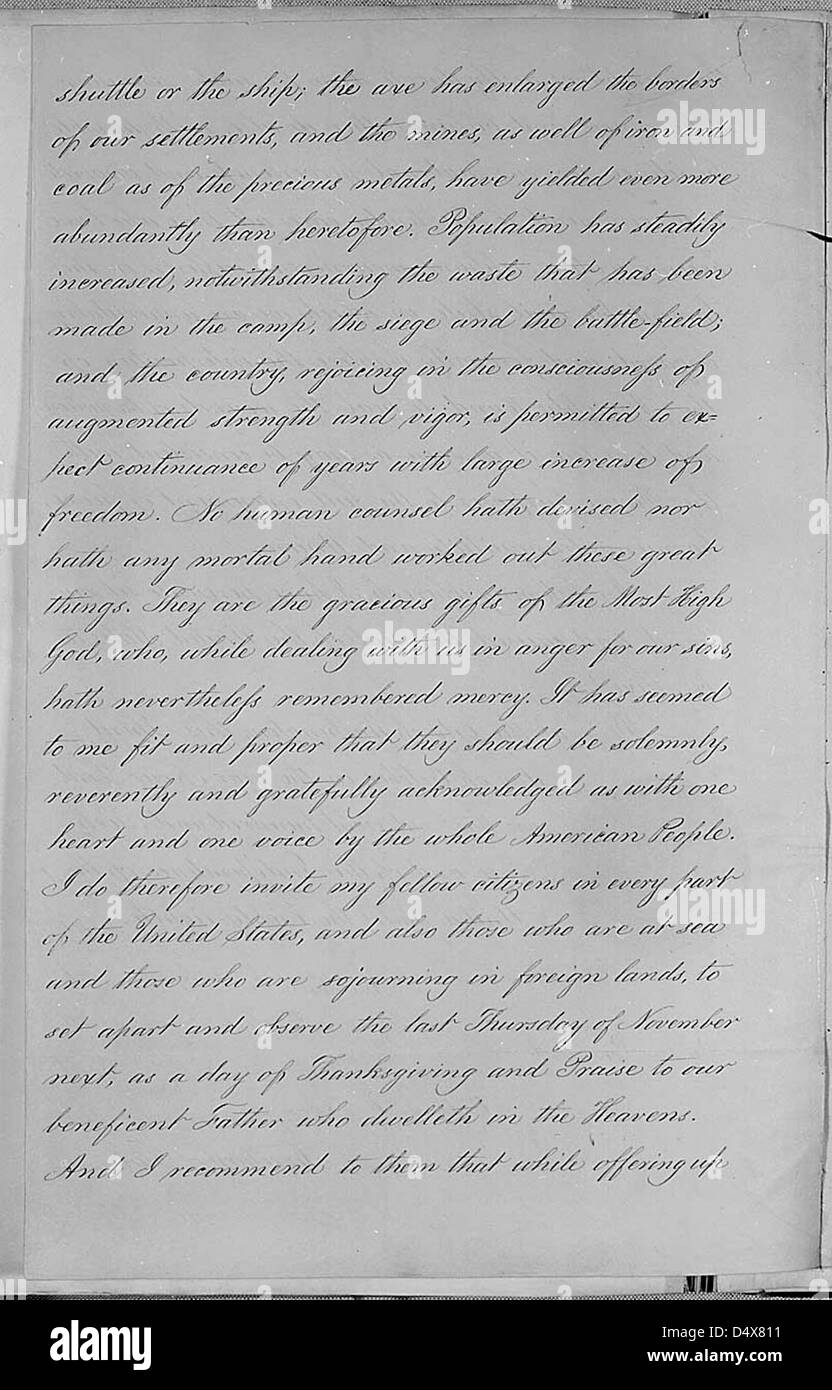 shuttle or the ship; the axe has enlarged the borders
of our settlements, and the mines, as well of iron and
coal as of the precious metals, have yielded even more
abundantly than heretofore. Population has steadily
increased, notwithstanding the waste that has been
made in the camp, the siege and the battle-field;
and the country, rejoicing in the consciousneſs of
augmented strength and vigor, is permitted to ex=
pect continuance of years with large increase of
freedom. No human counsel hath devised nor
hath any mortal hand worked out these great
things. They are the gracious gifts of the Most High
God, who, while dealing with us in anger for our sins,
hath nevertheleſs remembered mercy. It has seemed
to me fit and proper that they should be solemnly,
reverently and gratefully acknowledged as with one
heart and one voice by the whole American People.
I do therefore invite my fellow citizens in every part
of the United States, and also those who are at sea
and those who are sojourning in foreign lands, to
set apart and observe the last Thursday of November
next, as a day of Thanksgiving and Praise to our
beneficent Father who dwelleth in the Heavens.
And I recommend to them that while offering up
alamy
alamy
alamy
a alamy
Image ID: D4X811
www.alamy.com